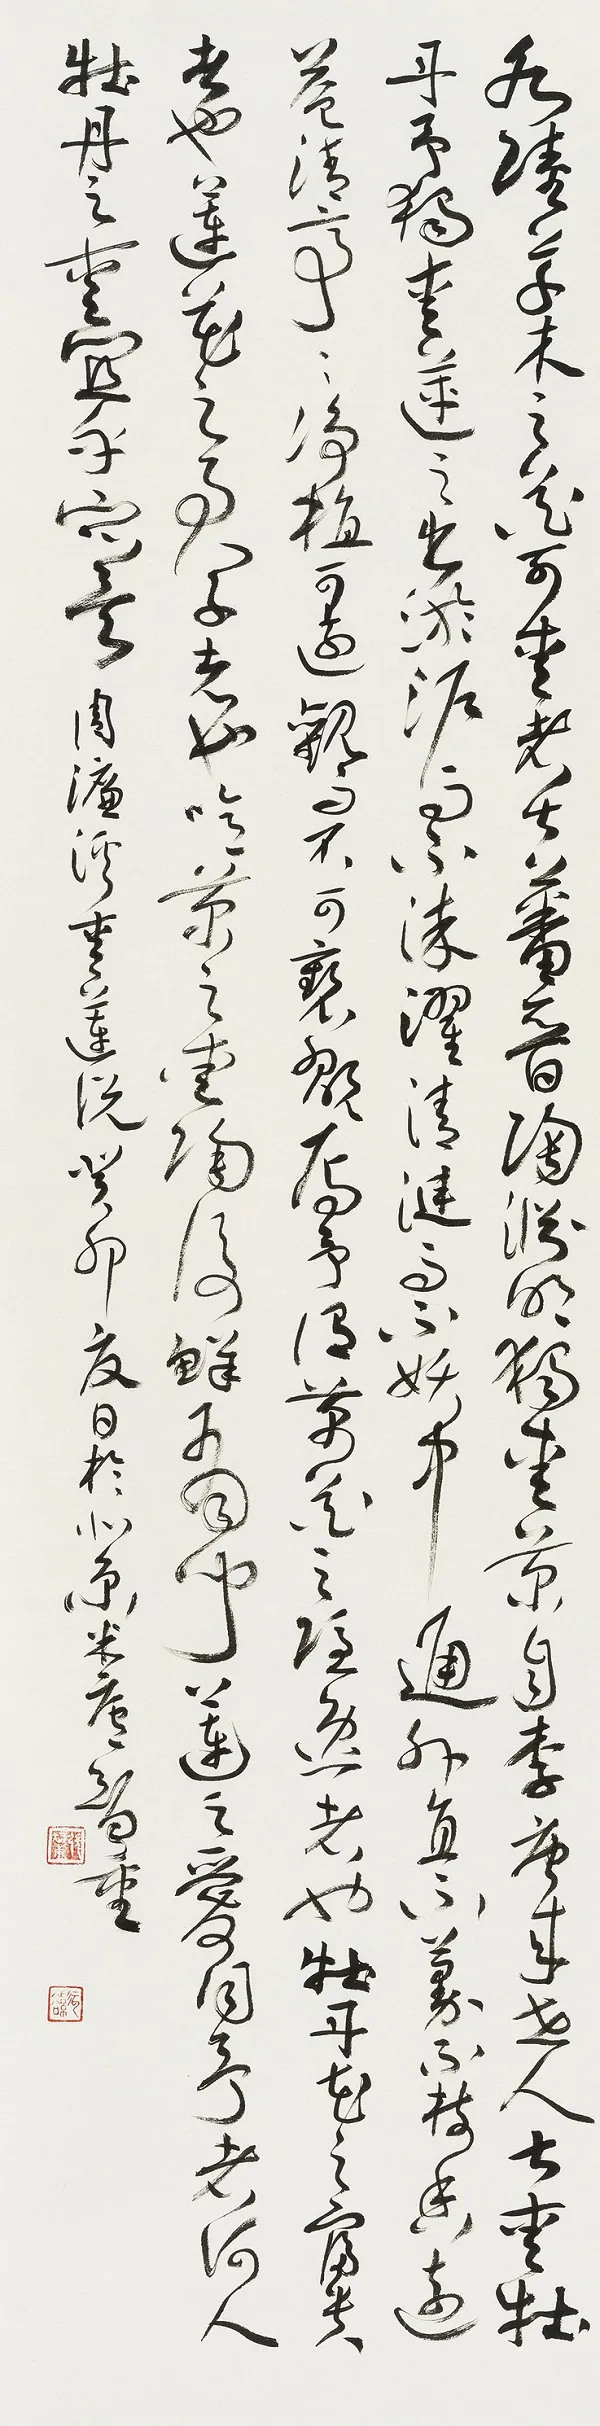 水陸草木之花可愛者甚蕃晉陶淵明獨愛菊自李唐來世人甚愛牡
丹予獨愛蓮之出淤泥而不染濯清漣而不妖中通外直不蔓不枝香遠
益清亭〻淨植可遠觀而不可褻翫焉予謂菊花之隱逸者也牡丹花之富貴
者也蓮花之君子者也噫菊之愛陶後鮮有聞蓮之愛同予者何人
牡丹之愛宜乎眾矣周濂溪愛蓮說癸卯夏日於北京米庵